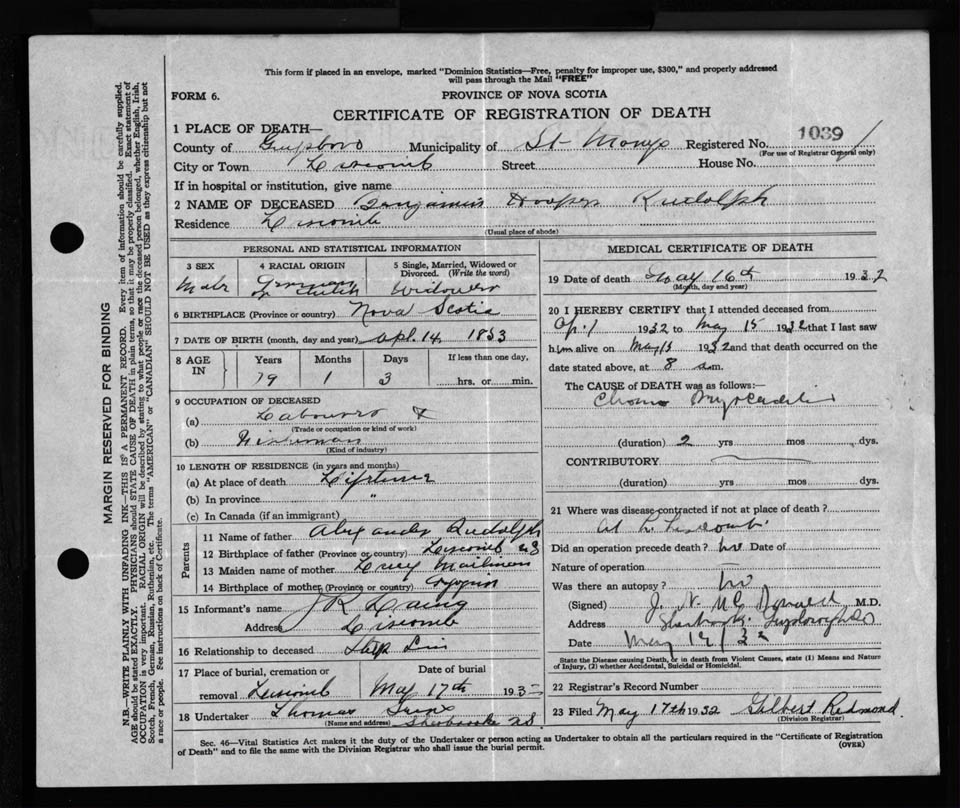 This form if placed in an envelope, marked "Dominion Statistics—Free, penalty for improper use, $300," and properly addressed
will pass through the Mail "FREE"
FORM 6.
PROVINCE OF NOVA SCOTIA
CERTIFICATE OF REGISTRATION OF DEATH
1 PLACE OF DEATH—
County of Guysboro Municipality of St. Marys Registered No. 1039
(For use of Registrar General only)
City or Town Liscomb Street House No.
If in hospital or institution, give name
2 NAME OF DECEASED Benjamin Hooper Rudolph
Residence Liscomb
(Usual place of abode)
PERSONAL AND STATISTICAL INFORMATION
3 SEX
Male
4 RACIAL ORIGIN
German
or Dutch
5 Single, Married, Widowed or
Divorced. (Write the word)
Widower
6 BIRTHPLACE (Province or country) Nova Scotia
7 DATE OF BIRTH (month, day and year) Apl. 14, 1853
8 AGE IN
Years Months Days
79 1 3
If less than one day,
hrs. or min.
9 OCCUPATION OF DECEASED
(a) Labourer &
(Trade or occupation or kind of work)
(b) Fisherman
(Kind of industry)
10 LENGTH OF RESIDENCE (in years and months)
(a) At place of death Lifetime
(b) In province "
(c) In Canada (if an immigrant)
Parents
11 Name of father Alexander Rudolph
12 Birthplace of father (Province or country) Liscomb NS
13 Maiden name of mother Lucy Mailman
14 Birthplace of mother (Province or country)
15 Informant's name J R Laing
Address Liscomb
16 Relationship to deceased Step Son
17 Place of burial, cremation or
removal Liscomb
Date of burial
May 17th 1932
18 Undertaker Thomas
(Name and address) Sherbrooke NS
MEDICAL CERTIFICATE OF DEATH
19 Date of death May 16th 1932
(Month, day and year)
20 I HEREBY CERTIFY that I attended deceased from
Apl 1932 to May 15 1932 that I last saw
him alive on May 1932 and that death occurred on the
date stated above, at 8 a.m.
The CAUSE of DEATH was as follows:—
Chronic Myocarditis
(duration) 2 yrs mos dys.
CONTRIBUTORY
(duration) yrs mos dys.
21 Where was disease contracted if not at place of death?
At Liscomb
Did an operation precede death? no Date of
Nature of operation
Was there an autopsy? no
(Signed) J. N. McDonald M.D.
Address Sherbrooke, Guysborough Co
Date May 19/32
State the Disease causing Death, or in death from Violent Causes, state (1) Means and Nature
of Injury, (2) whether Accidental, Suicidal or Homicidal.
22 Registrar's Record Number
23 Filed May 17th 1932 Gilbert Redmond
(Division Registrar)
Sec. 46—Vital Statistics Act makes it the duty of the Undertaker or person acting as Undertaker to obtain all the particulars required in the "Certificate of Registration
of Death" and to file the same with the Division Registrar who shall issue the burial permit.
(OVER)
MARGIN RESERVED FOR BINDING
N.B.—WRITE PLAINLY WITH UNFADING INK—THIS IS A PERMANENT RECORD. Every item of information should be carefully supplied.
AGE should be stated EXACTLY. PHYSICIANS should STATE CAUSE OF DEATH in plain terms, so that it may be properly classified. Exact statement of
OCCUPATION is very important. RACIAL ORIGIN will be described by stating to what people or race the deceased person belonged, whether English, Irish,
Scotch, French, German, Russian, Ruthenian, etc. The terms "AMERICAN" or "CANADIAN" SHOULD NOT BE USED as they express citizenship but not
a race or people. See instructions on back of Certificate.